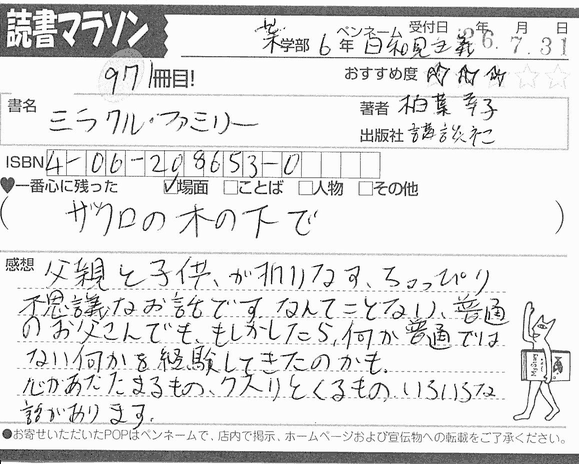 読書マラソン
薬学部 6年 ペンネーム 日和見主義 受付日 年 月 日 26.7.31
971冊目! おすすめ度 ☆☆☆☆☆
書名 ミラクル・ファミリー 著者 柏葉幸子
出版社 講談社
ISBN 4-06-208653-0
♥一番心に残った ☑場面 □ことば □人物 □その他
(ザクロの木の下で)
感想 父親と子供、が折りなす、ちょっぴり
不思議なお話です。なんてことない、普通
のお父さんでも、もしかしたら、何か普通では
ない何かを経験してきたのかも。
心があたたまるもの、クスリとくるもの、いろいろな
話があります。
●お寄せいただいたPOPはペンネームで、店内で掲示、ホームページおよび宣伝物への転載をご了承ください。